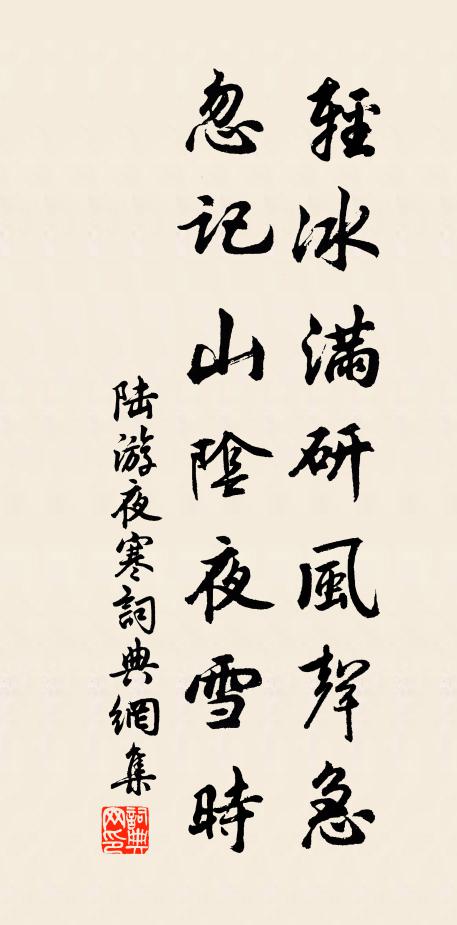 輕冰滿研風聲急
忽記山陰夜雪時
陆游夜寒詞典網集
詞典网印